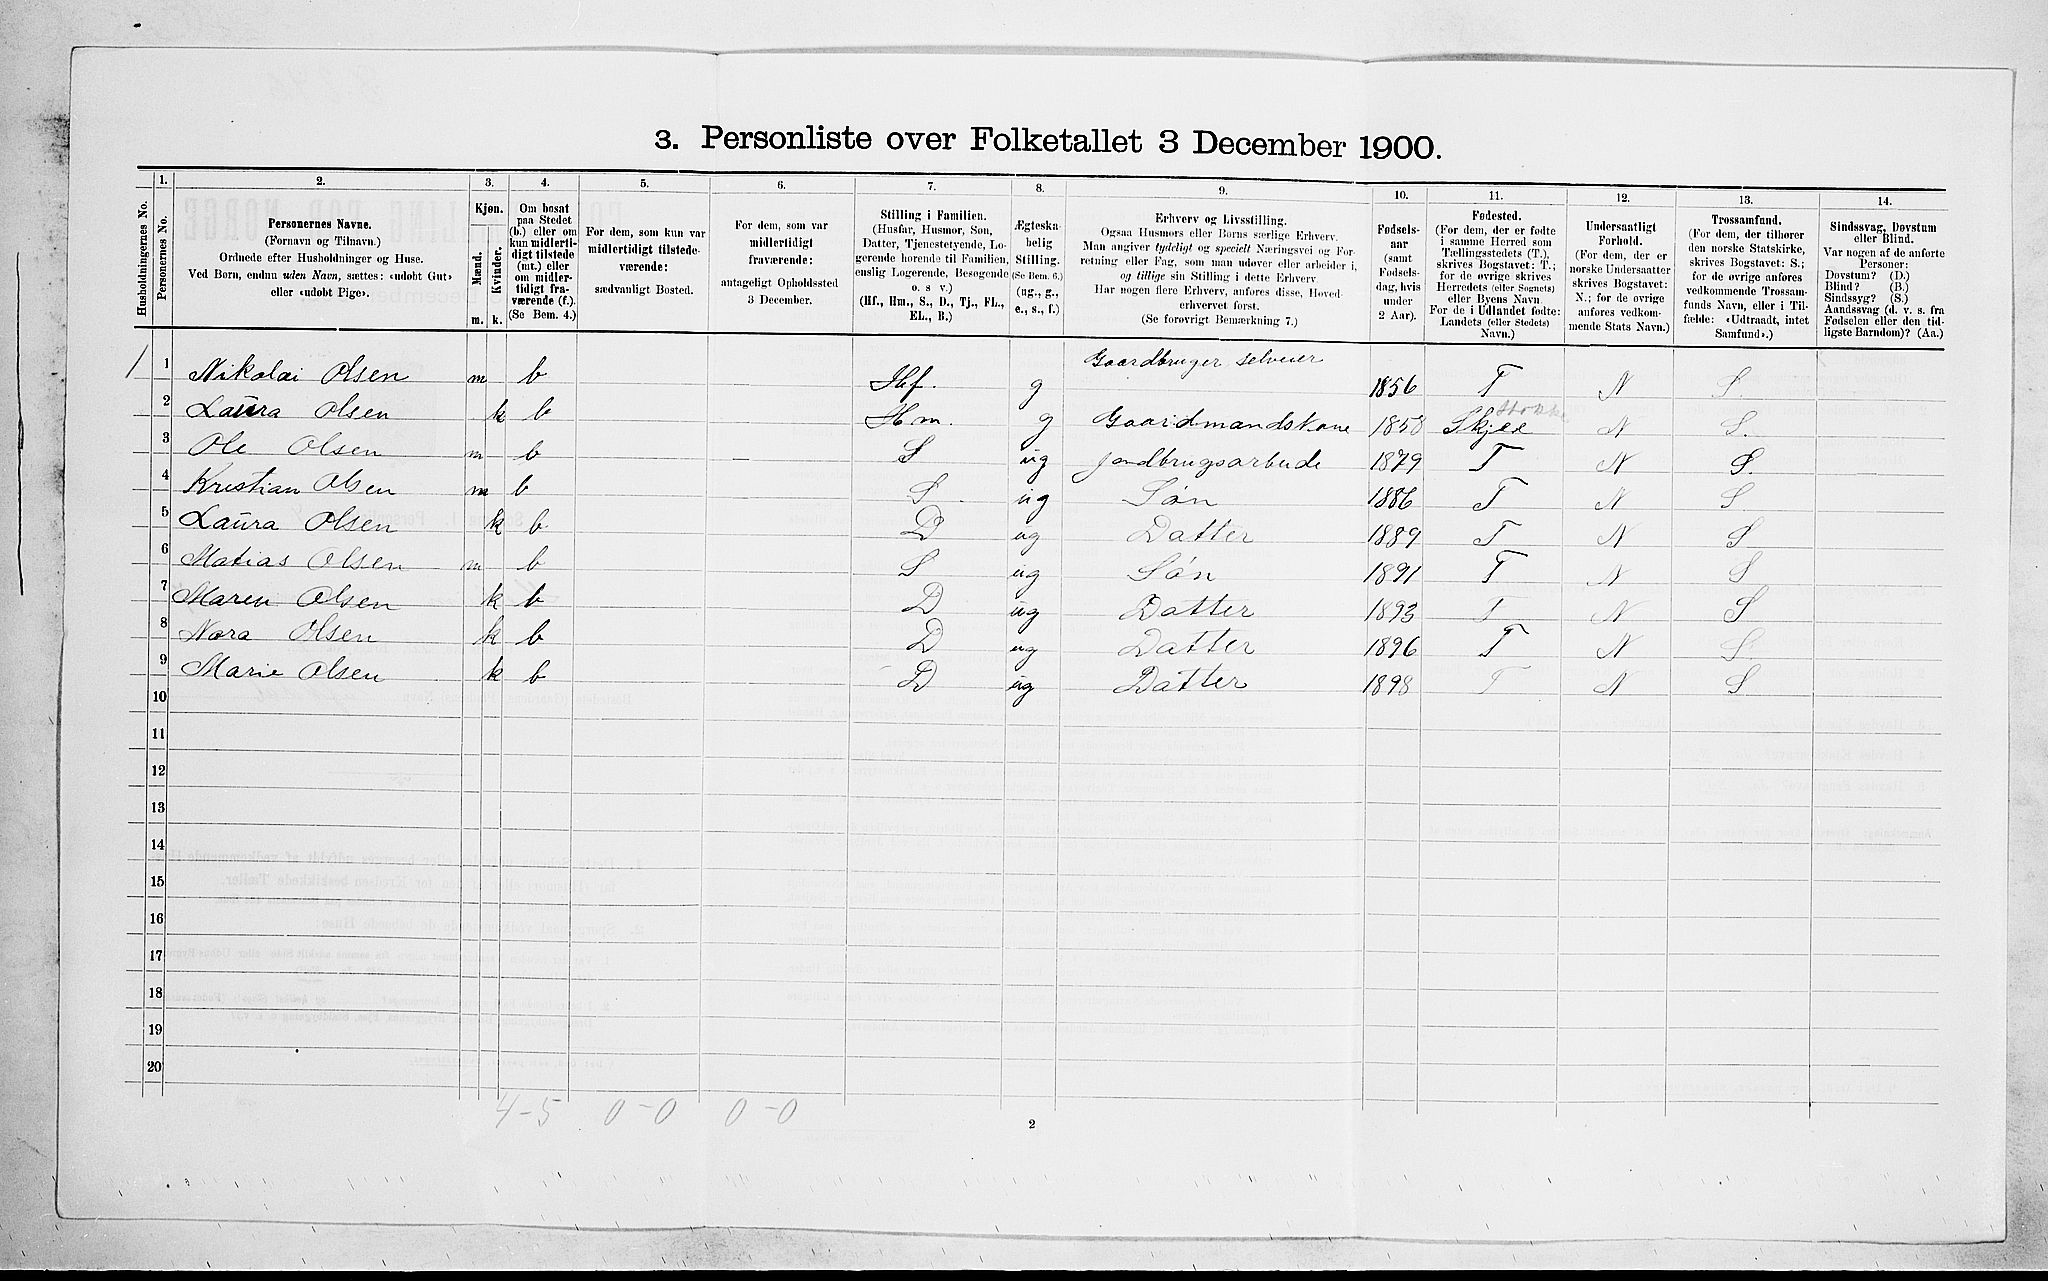 3. Personliste over Folketallet 3 December 1900.
Husholdningernes No.
1. Personernes No.
2. Personernes Navne.
(Fornavn og Tilnavn.)
Ordnede efter Husholdninger og Huse.
Ved Børn, endnu uden Navn, sættes: «udøbt Gut»
eller «udøbt Pige».
3. Kjøn.
Mænd. Kvinder.
m. k.
4. Om bosat
paa Stedet
(b.) eller om
kun midlerti-
digt tilstede
(mt.) eller
om midler-
tidigt fra-
værende (f.).
(Se Bem. 4.)
5. For dem, som kun var
midlertidigt tilstede-
værende:
sædvanligt Bosted.
6. For dem, som var
midlertidigt
fraværende:
antageligt Opholdssted
3 December.
7. Stilling i Familien.
(Husfar, Husmor, Søn,
Datter, Tjenestetyende, Lo-
gerende hørende til Familien,
enslig Logerende, Besøgende
o. s v.)
(Hf., Hm., S., D., Tj., FL.,
EL., B.)
8. Ægteska-
belig
Stilling.
(Se Bem. 6.)
(ug., g.,
e., s., f.)
9. Erhverv og Livsstilling.
Ogsaa Husmors eller Børns særlige Erhverv.
Man angiver tydeligt og specielt Næringsvei og For-
retning eller Fag, som man udøver eller arbeider i,
og tillige sin Stilling i dette Erhverv.
Har nogen flere Erhverv, anføres disse, Hoved-
erhvervet først.
(Se forøvrigt Bemærkning 7.)
10. Fødsels-
aar
(samt
Fødsels-
dag, hvis
under
2 Aar).
11. Fødested.
(For dem, der er fødte
i samme Herred som
Tællingsstedets (T.),
skrives Bogstavet: T.;
for de øvrige skrives
Herredets (eller Sognets)
eller Byens Navn.
For de i Udlandet fødte:
Landets (eller Stedets)
Navn.)
12. Undersaatligt
Forhold.
(For dem, der er
norske Undersaatter
skrives Bogstavet:
N.; for de øvrige
anføres vedkom-
mende Stats Navn.)
13. Trossamfund.
(For dem, der tilhører
den norske Statskirke,
skrives Bogstavet: S.;
for de øvrige anføres
vedkommende Trossam-
funds Navn, eller i Til-
fælde: «Udtraadt, intet
Samfund».)
14. Sindssvag, Døvstum
eller Blind.
Var nogen af de anførte
Personer:
Døvstum? (D.)
Blind? (B.)
Sindssyg? (S.)
Aandssvag (d. v. s. fra
Fødselen eller den tid-
ligste Barndom)? (Aa.)
1 1 Nikolai Olsen m b Hf. g Gaardbruger selveier 1856 T N S.
2 Laura Olsen k b Hm. g Gaardmandskone 1858 Skjee Stokke N S.
3 Ole Olsen m b S ug Jordbrugsarbeide 1879 T N S.
4 Kristian Olsen m b S ug Søn 1886 T N S
5 Laura Olsen k b D ug Datter 1889 T N S
6 Matias Olsen m b S ug Søn 1891 T N S
7 Maren Olsen k b D ug Datter 1893 T N S
8 Nora Olsen k b D ug Datter 1896 T N S
9 Marie Olsen k b D ug Datter 1898 T N S
10
11
12
13
14
15
16
17
18
19
20
4-5 0-0 0-0
2